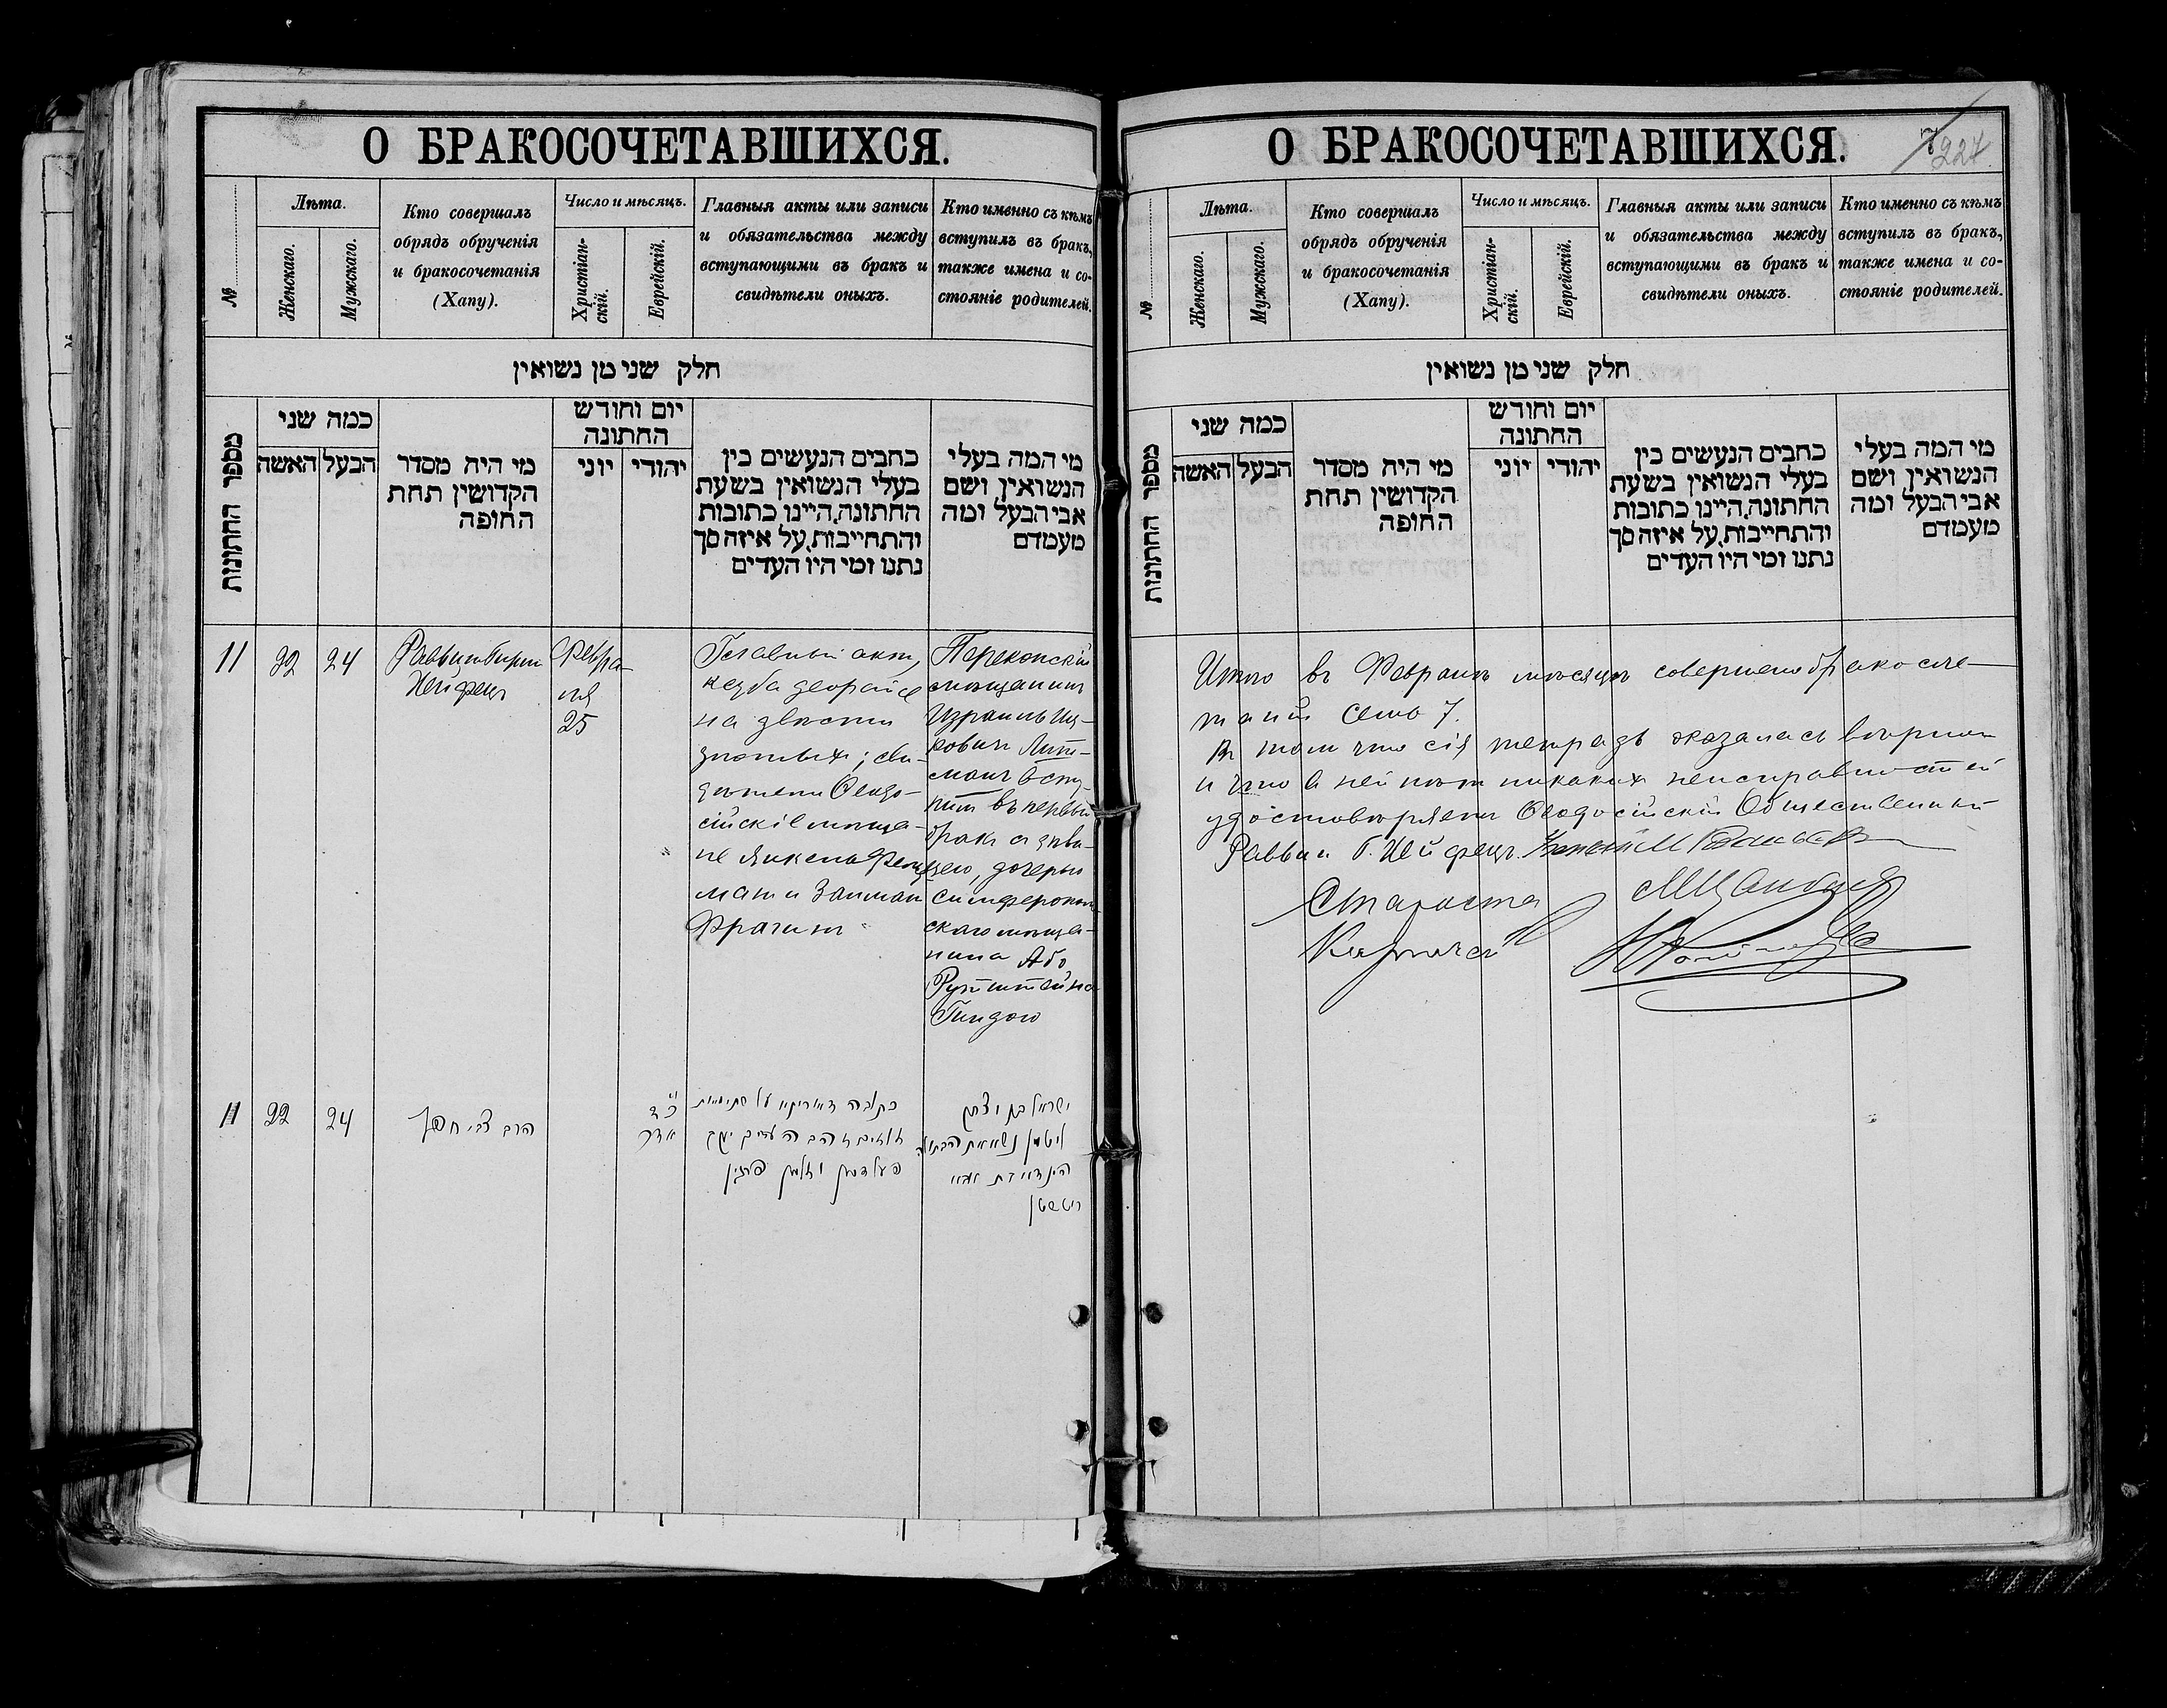 О БРАКОСОЧЕТАВШИХСЯ.
№
Лѣта.
Женскаго.
Мужскаго.
Кто совершалъ
обрядъ обрученія
и бракосочетанія
(Хапу).
Число и мѣсяцъ.
Христіан-
скій.
Еврейскій.
Главныя акты или записи
и обязательства между
вступающими въ бракъ и
свидѣтели оныхъ.
Кто именно съ кѣмъ
вступилъ въ бракъ,
также имена и со-
стояніе родителей.
חלק שני מן נשואין
מספר החתונות
כמה שני
האשה
הבעל
מי היה מסדר
הקדושין תחת
החופה
יום וחודש
החתונה
יוני
יהודי
כתבים הנעשים בין
בעלי הנשואין בשעת
החתונה, היינו כתובות
והתחייבות, על איזה סך
נתנו ומי היו העדים
מי המה בעלי
הנשואין, ושם
אבי הבעל ומה
מעמדם
11
22
24
Раввин Гирш
Хейфец
Февра-
ля
25
Главный акт,
кезба деорайсе
на двѣсти
золотых; сви-
дѣтели Ѳеодо-
сійскіе мѣща-
не
и Залман
Фрагин
Перекопскій
мѣщанин
Израиль Иц-
кович Лит-
ман всту-
пил въ первый
брак с дѣви-
цею, дочерью
симферополь-
скаго мѣща-
нина Або
Рутштейна
Гиндою
11
22
24
הרב צבי חפץ
כד
אדר
כתובה דאורייתא על מאתים
זהובים זהב העדים יעקב
וזלמן פרגין
ישראל בן יצחק
ליטמן נשא את הבתולה
הינדא בת אבא
О БРАКОСОЧЕТАВШИХСЯ.
7
224
№
Лѣта.
Женскаго.
Мужскаго.
Кто совершалъ
обрядъ обрученія
и бракосочетанія
(Хапу).
Число и мѣсяцъ.
Христіан-
скій.
Еврейскій.
Главныя акты или записи
и обязательства между
вступающими въ бракъ и
свидѣтели оныхъ.
Кто именно съ кѣмъ
вступилъ въ бракъ,
также имена и со-
стояніе родителей.
חלק שני מן נשואין
מספר החתונות
כמה שני
האשה
הבעל
מי היה מסדר
הקדושין תחת
החופה
יום וחודש
החתונה
יוני
יהודי
כתבים הנעשים בין
בעלי הנשואין בשעת
החתונה, היינו כתובות
והתחייבות, על איזה סך
נתנו ומי היו העדים
מי המה בעלי
הנשואין, ושם
אבי הבעל ומה
מעמדם
Итого въ Февралѣ мѣсяцѣ совершено бракосоче-
таній семь 7.
В том что сія тетрадь оказалась вѣрною
и что в ней нѣт никаких неисправностей
удостовѣряет Ѳеодосійскій Общественный
Раввин Г. Хейфец.
Староста